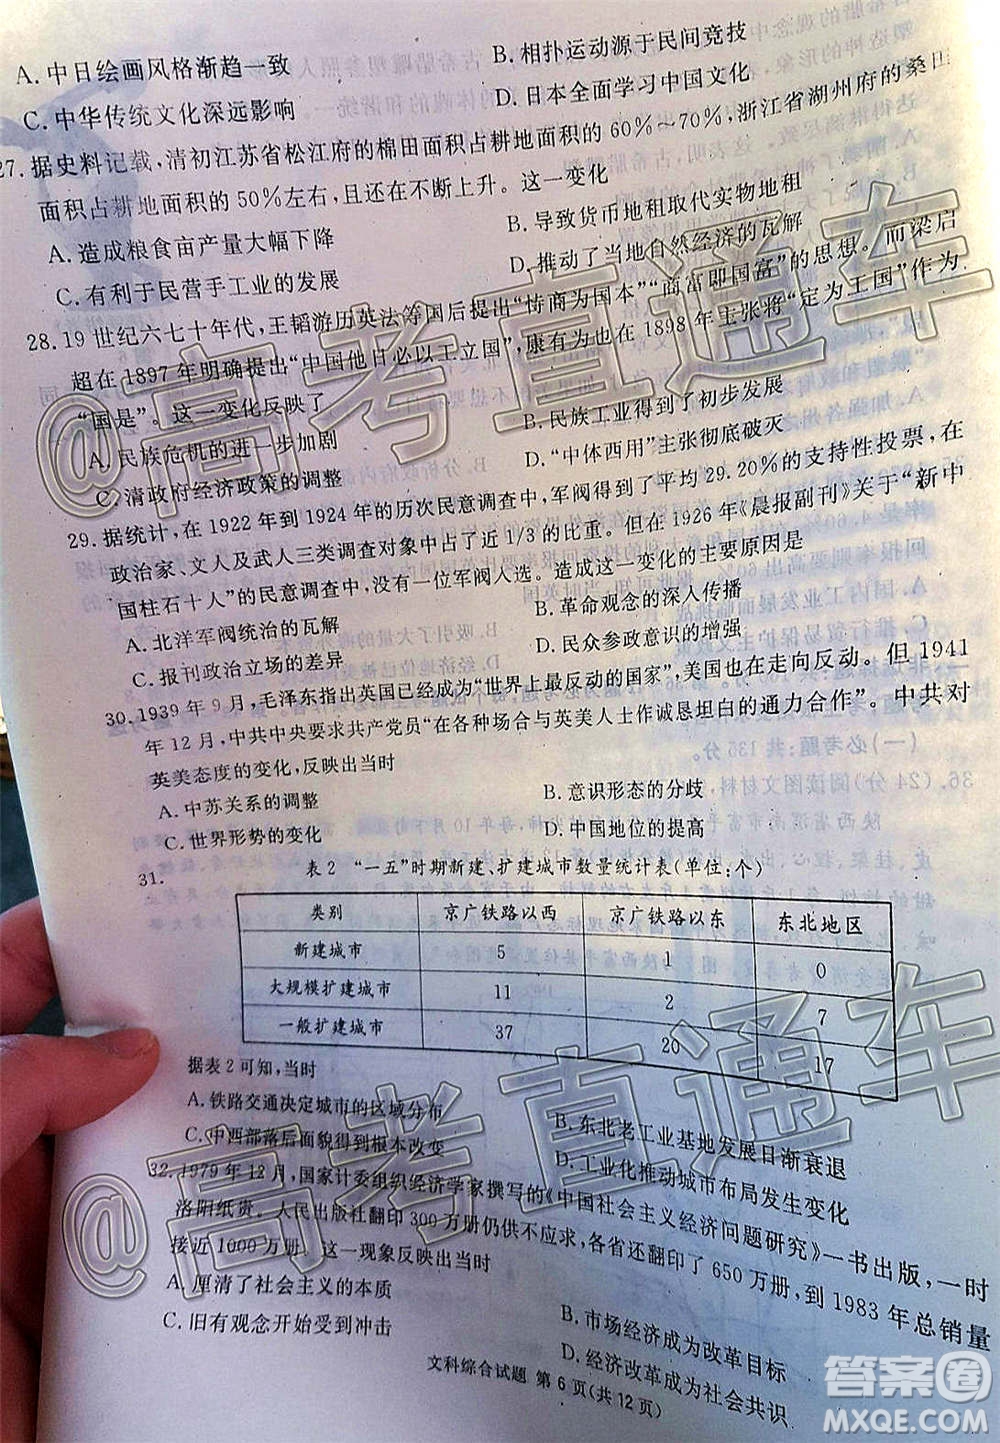 A. 中日绘画风格渐趋一致
B. 相扑运动源于民间竞技
C. 中华传统文化深远影响
D. 日本全面学习中国文化
27. 据史料记载，清初江苏省松江府的棉田面积占耕地面积的 60%～70%，浙江省湖州府的桑田
面积占耕地面积的 50%左右，且还在不断上升。这一变化
A. 造成粮食亩产量大幅下降
B. 导致货币地租取代实物地租
C. 有利于民营手工业的发展
D. 推动了当地自然经济的瓦解
28. 19 世纪六七十年代，王韬游历英法等国后提出“恃商为国本”“商富即国富”的思想。而梁启
超在 1897 年明确提出“中国他日必以工立国”，康有为也在 1898 年主张将“定为工国”作为
“国是”。这一变化反映了
A. 民族危机的进一步加剧
B. 民族工业得到了初步发展
C. 清政府经济政策的调整
D. “中体西用”主张彻底破灭
29. 据统计，在 1922 年到 1924 年的历次民意调查中，军阀得到了平均 29.20%的支持性投票，在
政治家、文人及武人三类调查对象中占了近 1/3 的比重。但在 1926 年《晨报副刊》关于“新中
国柱石十人”的民意调查中，没有一位军阀入选。造成这一变化的主要原因是
A. 北洋军阀统治的瓦解
B. 革命观念的深入传播
C. 报刊政治立场的差异
D. 民众参政意识的增强
30. 1939 年 9 月，毛泽东指出英国已经成为“世界上最反动的国家”，美国也在走向反动。但 1941
年 12 月，中共中央要求共产党员“在各种场合与英美人士作诚恳坦白的通力合作”。中共对
英美态度的变化，反映出当时
A. 中苏关系的调整
B. 意识形态的分歧
C. 世界形势的变化
D. 中国地位的提高
31. 表 2 “一五”时期新建、扩建城市数量统计表(单位:个)
类别 京广铁路以西 京广铁路以东 东北地区
新建城市 5 1 0
大规模扩建城市 11 2 7
一般扩建城市 37 20 17
据表 2 可知，当时
A. 铁路交通决定城市的区域分布
B. 东北老工业基地发展日渐衰退
C. 中西部落后面貌得到根本改变
D. 工业化推动城市布局发生变化
32. 1979 年 12 月，国家计委组织经济学家撰写的《中国社会主义经济问题研究》一书出版，一时
洛阳纸贵。人民出版社翻印 300 万册仍供不应求，各省还翻印了 650 万册，到 1983 年总销量
接近 1000 万册。这一现象反映出当时
A. 厘清了社会主义的本质
B. 市场经济成为改革目标
C. 旧有观念开始受到冲击
D. 经济改革成为社会共识
文科综合试题 第 6 页(共 12 页)
@高考直通车
@高考直通车
答案圈
MXQE.COM